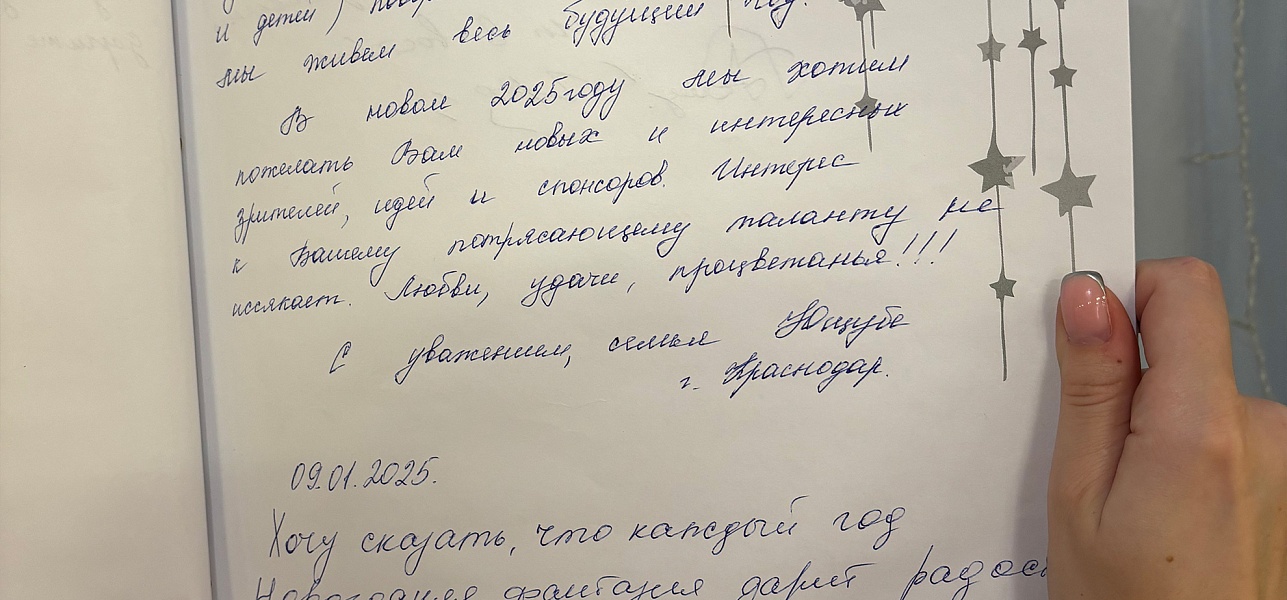 и детей)
мы живем весь будущий год.
В новом 2025году мы хотим
пожелать Вам новых и интересных
зрителей, идей и спонсоров. Интерес
к Вашему потрясающему таланту не
иссякает. Любви, удачи, процветанья!!!
С уважением, семья Ющубе
г. Краснодар.
09.01.2025.
Хочу сказать, что каждый год
Новогодняя фантазия дарит радос